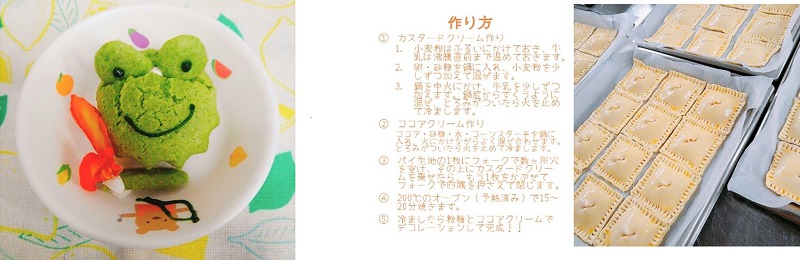 作り方
① カスタードクリーム作り
1. 小麦粉はふるいにかけておき、牛
乳は沸騰直前まで温めておきます。
2. 卵・砂糖を鍋に入れ、小麦粉を少
しずつ加えて混ぜます。
3. 鍋を中火にかけ、牛乳を少しずつ
加えます。鍋底からすくうように
混ぜ、とろみがついたら火を止め
て冷まします。
② ココアクリーム作り
ココア・砂糖・水・コーンスターチを鍋に
入れ、火にかけながらよく混ぜ合わせます。
とろみがついたら火を止めて冷まします。
③ パイ生地の1枚にフォークで数ヶ所穴
を空け、その上にカスタードクリー
ムを乗せたら、もう1枚をかぶせて
フォークで四隅を押さえて閉じます。
④ 200℃のオーブン（予熱済み）で15～
20分焼きます。
⑤ 冷ましたら粉糖とココアクリームで
デコレーションして完成！！